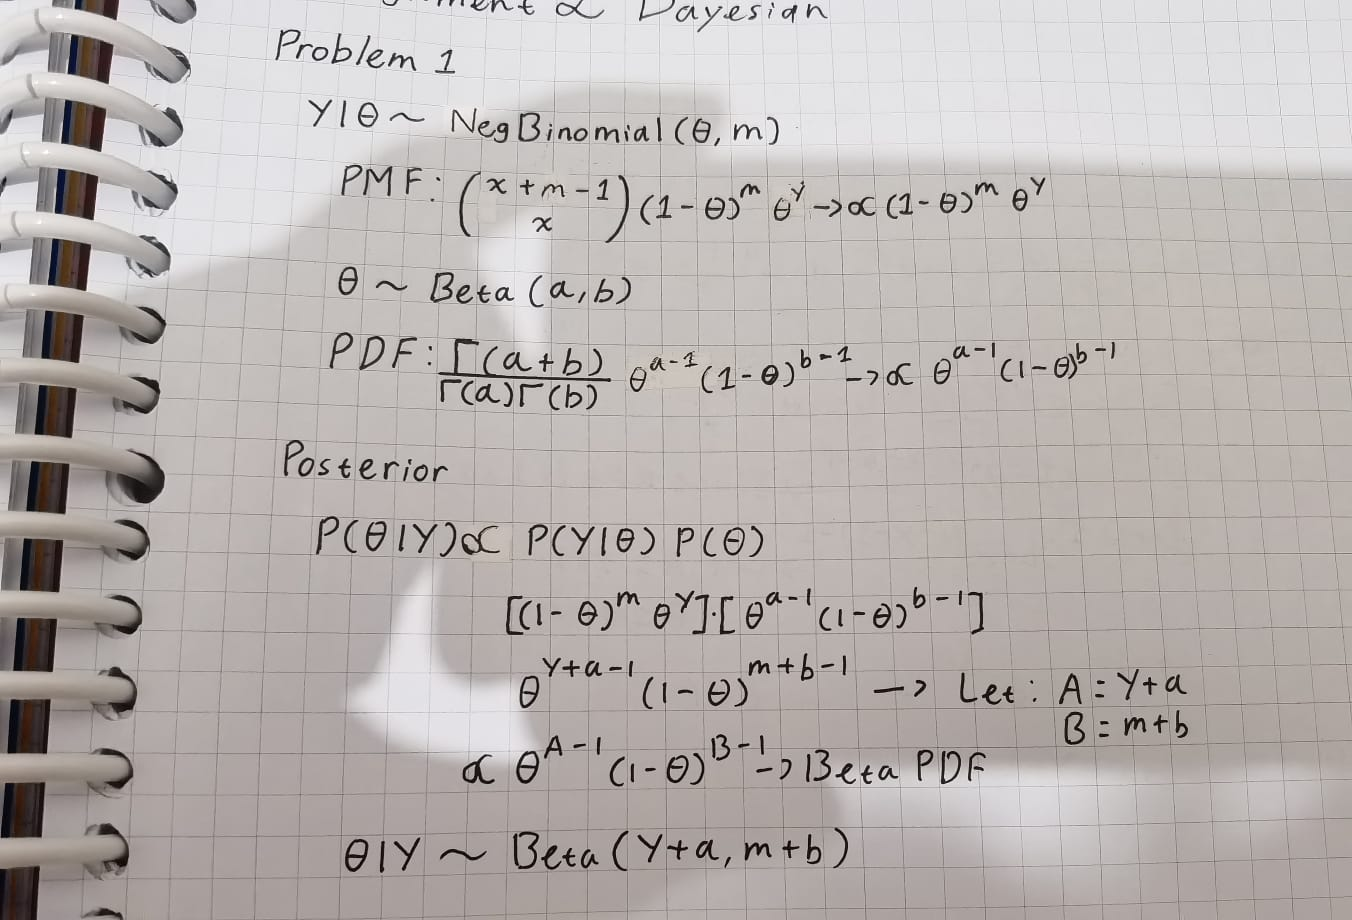 & Bayesian
Problem 1
Y|θ ~ NegBinomial(θ, m)
PMF: (x+m-1 x)(1-θ)^m θ^y -> ∝ (1-θ)^m θ^Y
θ ~ Beta(a,b)
PDF: Γ(a+b)/Γ(a)Γ(b) θ^a-1 (1-θ)^b-1 -> ∝ θ^a-1 (1-θ)^b-1
Posterior
P(θ|Y) ∝ P(Y|θ) P(θ)
[(1-θ)^m θ^Y]·[θ^a-1 (1-θ)^b-1]
θ^Y+a-1 (1-θ)^m+b-1 -> Let: A = Y+a
B = m+b
∝ θ^A-1 (1-θ)^B-1 -> Beta PDF
θ|Y ~ Beta(Y+a, m+b)